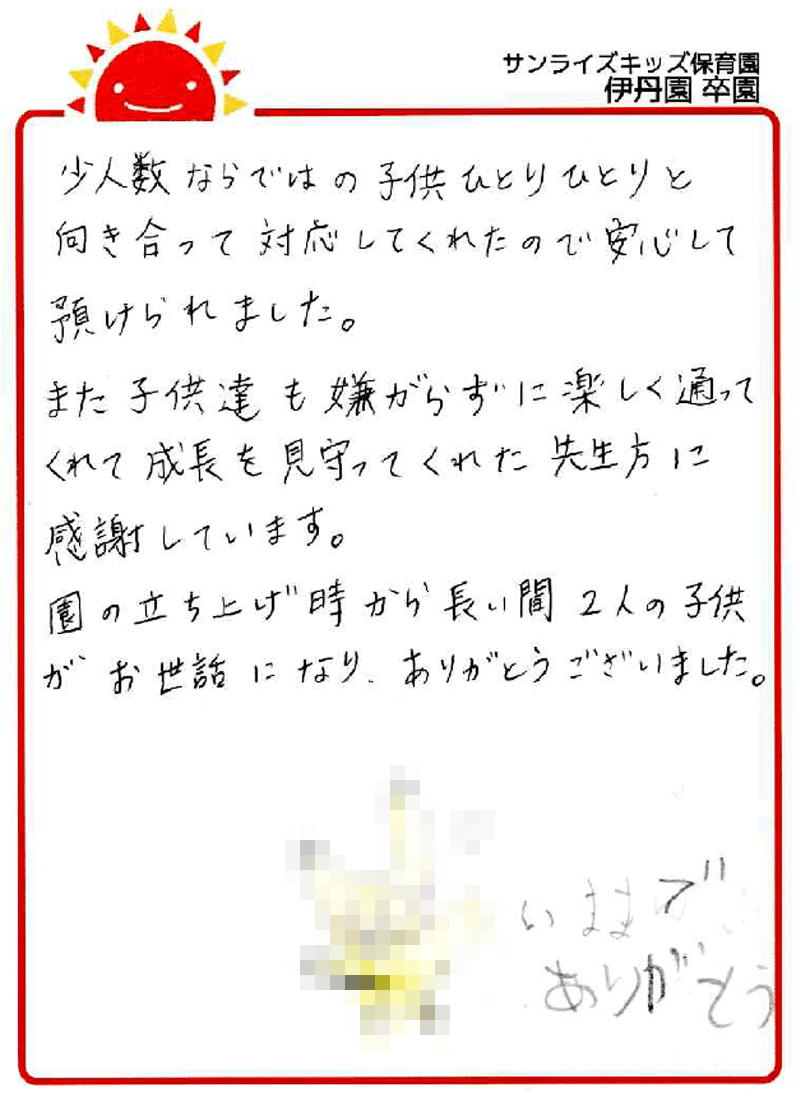 サンライズキッズ保育園
伊丹園 卒園
少人数ならではの子供ひとりひとりと
向き合って対応してくれたので安心して
預けられました。
また子供達も嫌がらずに楽しく通って
くれて成長を見守ってくれた先生方に
感謝しています。
園の立ち上げ時から長い間2人の子供
がお世話になり、ありがとうございました。
いままで
ありがとう